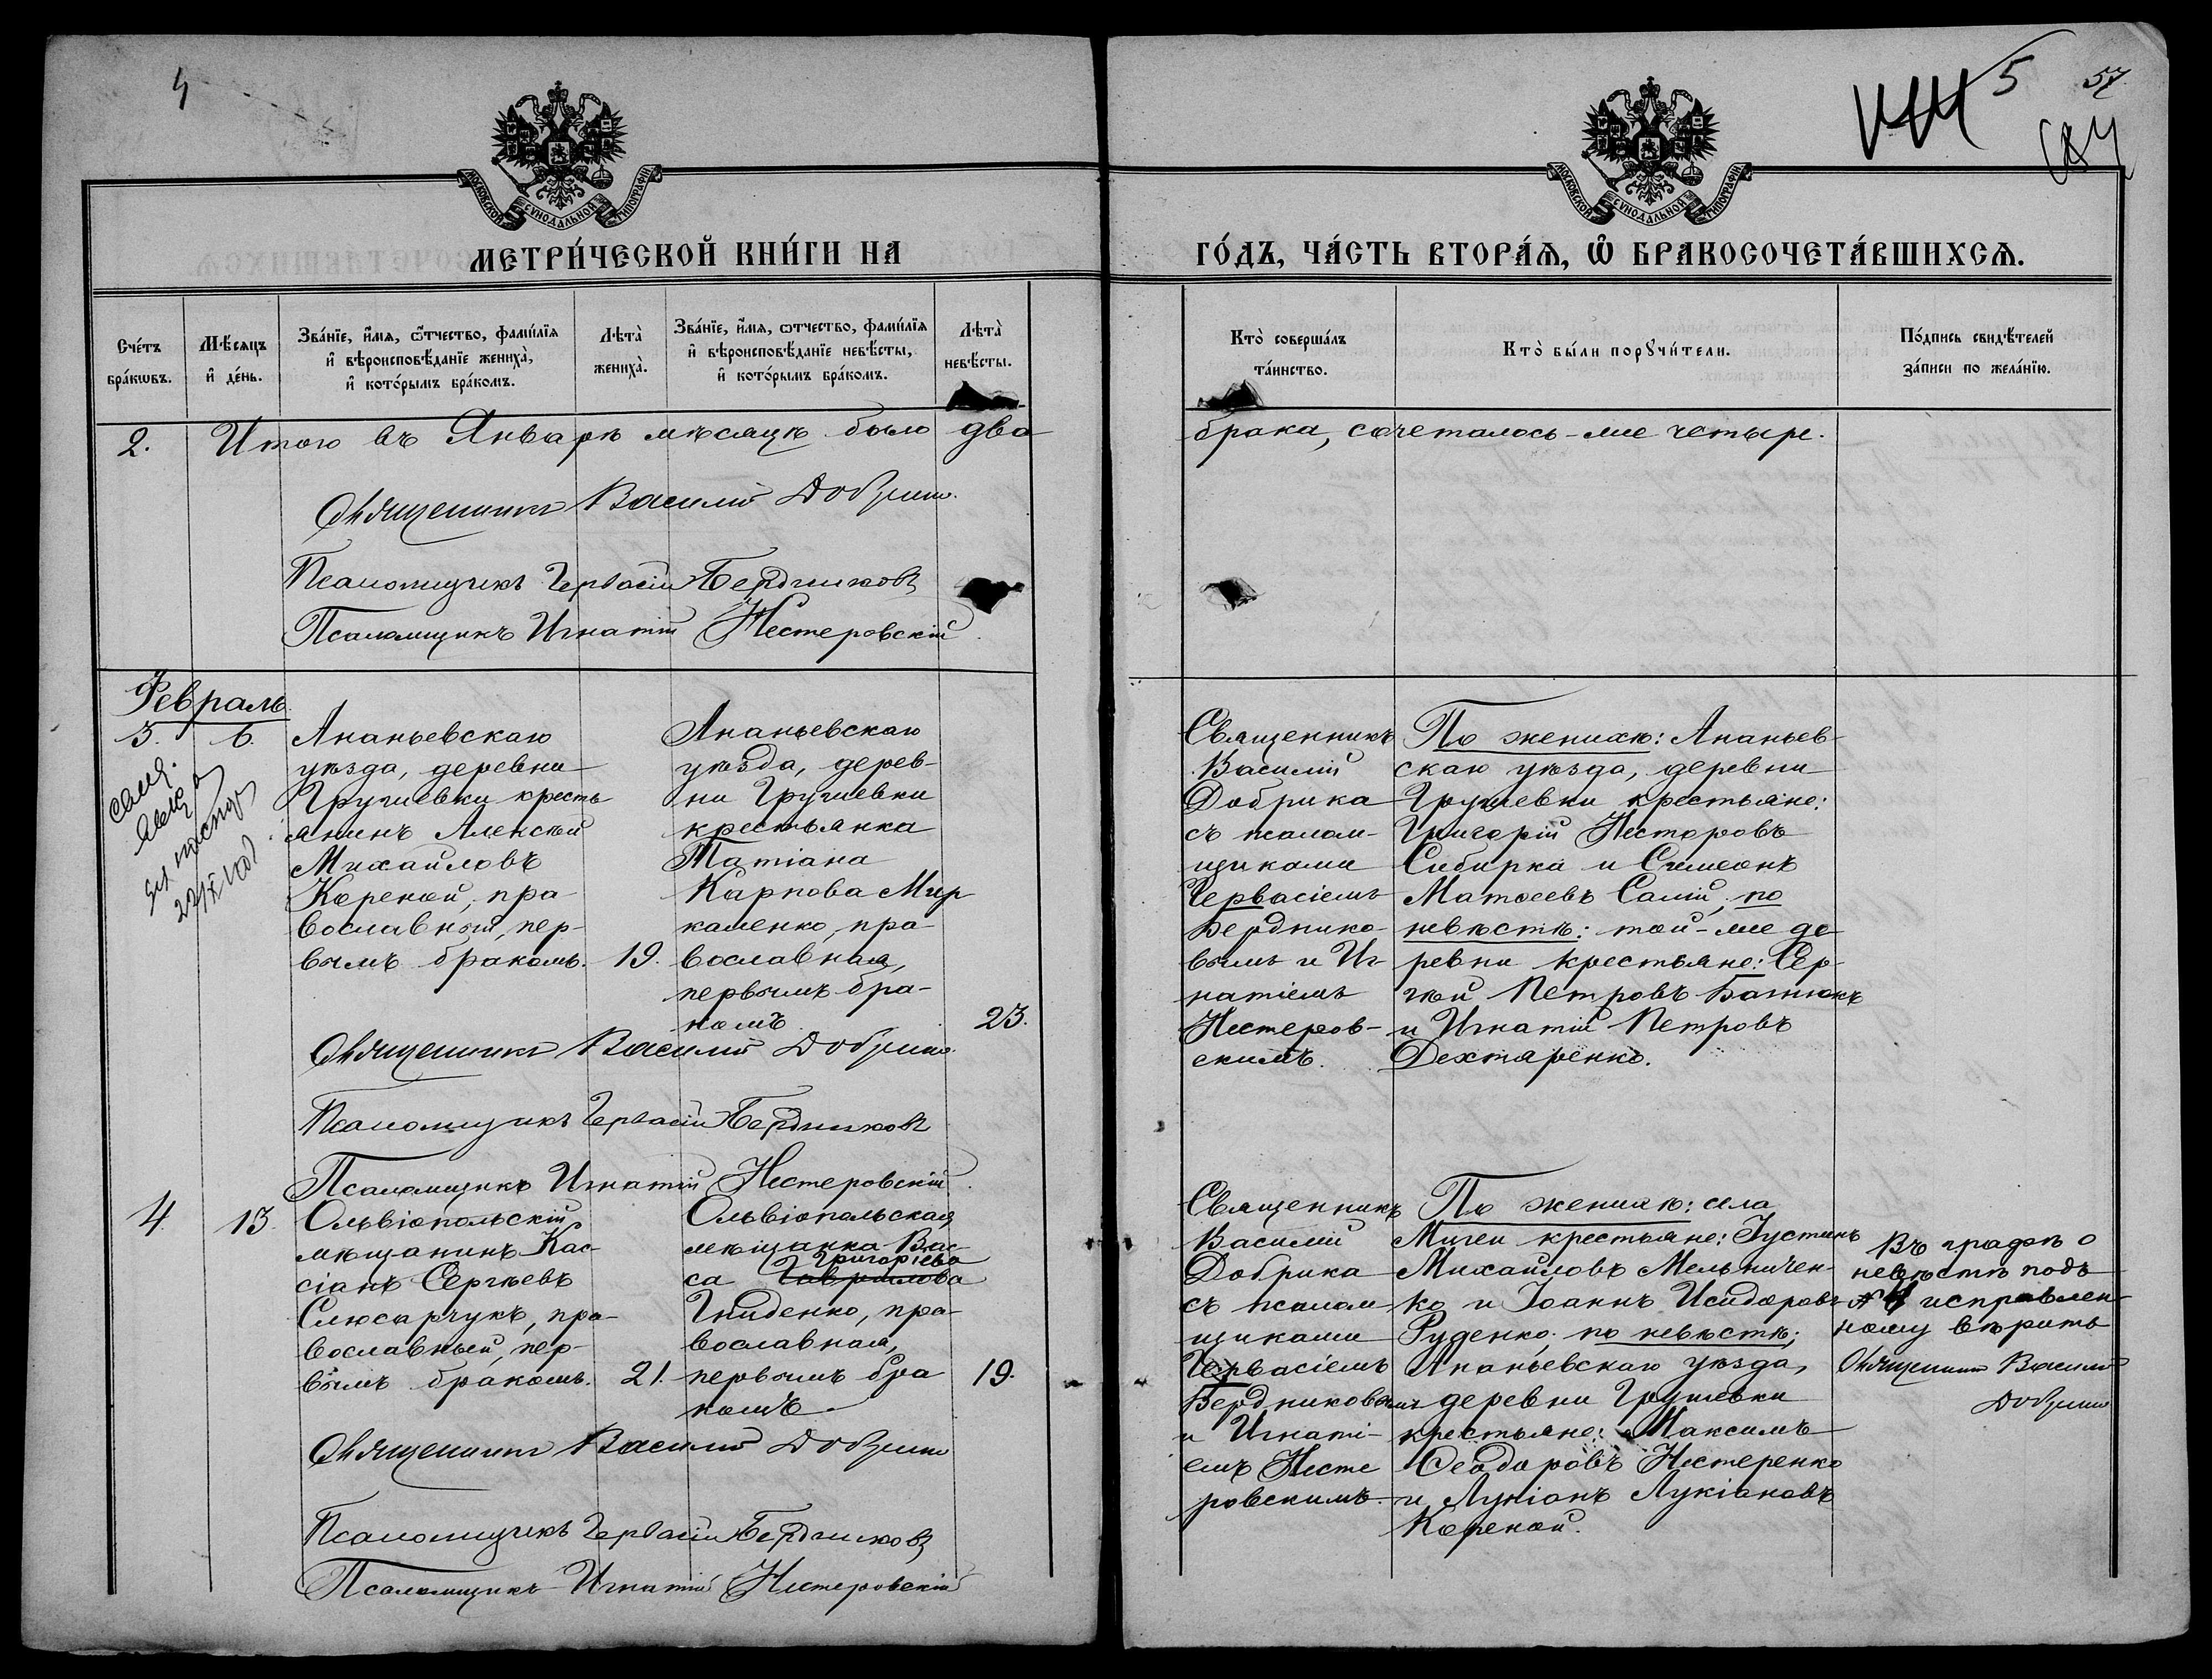 4
5
57
МОСКОВСКОЙ СѴНОДАЛЬНОЙ ТИПОГРАФІИ
МОСКОВСКОЙ СѴНОДАЛЬНОЙ ТИПОГРАФІИ
МЕТРИ́ЧЕСКОЙ КНИ́ГИ НА
ГО́ДЪ, ЧА́СТЬ ВТОРА́Ѧ, Ѽ БРАКОСОЧЕТА́ВШИХСѦ.
Сче́тъ бра́кѡвъ.
Мѣ́сѧцъ и҆ де́нь.
Зва́нїе, и҆́мѧ, ѻ҆́тчество, фами́лїѧ и҆ вѣроисповѣ́данїе жениха̀, и҆ кото́рымъ бра́комъ.
Лѣта̀ жениха̀.
Зва́нїе, и҆́мѧ, ѻ҆тчество, фами́лїѧ и҆ вѣроисповѣ́данїе невѣ́сты, и҆ кото́рымъ бра́комъ.
Лѣта̀ невѣ́сты.
Кто̀ соверша́лъ та́инство.
Кто̀ бы́ли порꙋчи́тели.
По́дпись свидѣ́телей за́писи по жела́нїю.
2. Итого въ Январѣ мѣсяцѣ было два
брака, сочеталось-же четыре.
Священникъ Василій Добрика
Псаломщикъ Гервасій Бердниковъ
Псаломщикъ Игнатій Нестеровскій
Февраль.
3. 6.
Ананьевскаго
уѣзда, деревни
Грушевки кресть
янинъ Алексѣй
Михайловъ
Кореной, пра-
вославный, пер-
вымъ бракомъ. 19.
Ананьевскаго
уѣзда, дерев-
ни Грушевки
крестьянка
Татіана
Карпова Мир
каленко, пра-
вославная,
первымъ бра-
комъ. 23.
Священникъ
Василій
Добрика
съ псалом-
щиками
Гервасіемъ
Берднико-
вымъ и Иг-
натіемъ
Нестеров-
скимъ.
По женихѣ: Ананьев-
скаго уѣзда, деревни
Грушевки крестьяне:
Григорій Несторовъ
Сибирка и Симеонъ
Матѳеевъ Салій, по
невѣстѣ: той-же де
ревни крестьяне: Сер-
гѣй Петровъ Батюкъ
и Игнатій Петровъ
Дехтяренко.
Священникъ Василій Добрика
Псаломщикъ Гервасій Бердниковъ
Псаломщикъ Игнатій Нестеровскій
4. 13.
Ольвіопольскій
мѣщанинъ Кас-
сіанъ Сергѣевъ
Слюсарчукъ, пра-
вославный, пер-
вымъ бракомъ. 21.
Ольвіопольская
мѣщанка Вас-
Григоріева
са Гавриилова
Гниденко, пра-
вославная,
первымъ бра
комъ. 19.
Священникъ
Василій
Добрика
съ псалом-
щиками
Гервасіемъ
Бердниковымъ
и Игнаті-
емъ Несте
ровскимъ.
По женихѣ: села
Мигеи крестьяне: Іустинъ
Михайловъ Мельничен-
ко и Іоаннъ Исидоровъ
Руденко; по невѣстѣ;
Ананьевскаго уѣзда,
деревни Грушевки
крестьяне: Максимъ
Ѳеодоровъ Нестеренко
и Лукіанъ Лукіановъ
Кореной.
Въ графѣ о
невѣстѣ подъ
№ 4 исправлен-
ному вѣрить
Священникъ Василій
Добрика
Священникъ Василій Добрика
Псаломщикъ Гервасій Бердниковъ
Псаломщикъ Игнатій Нестеровскій